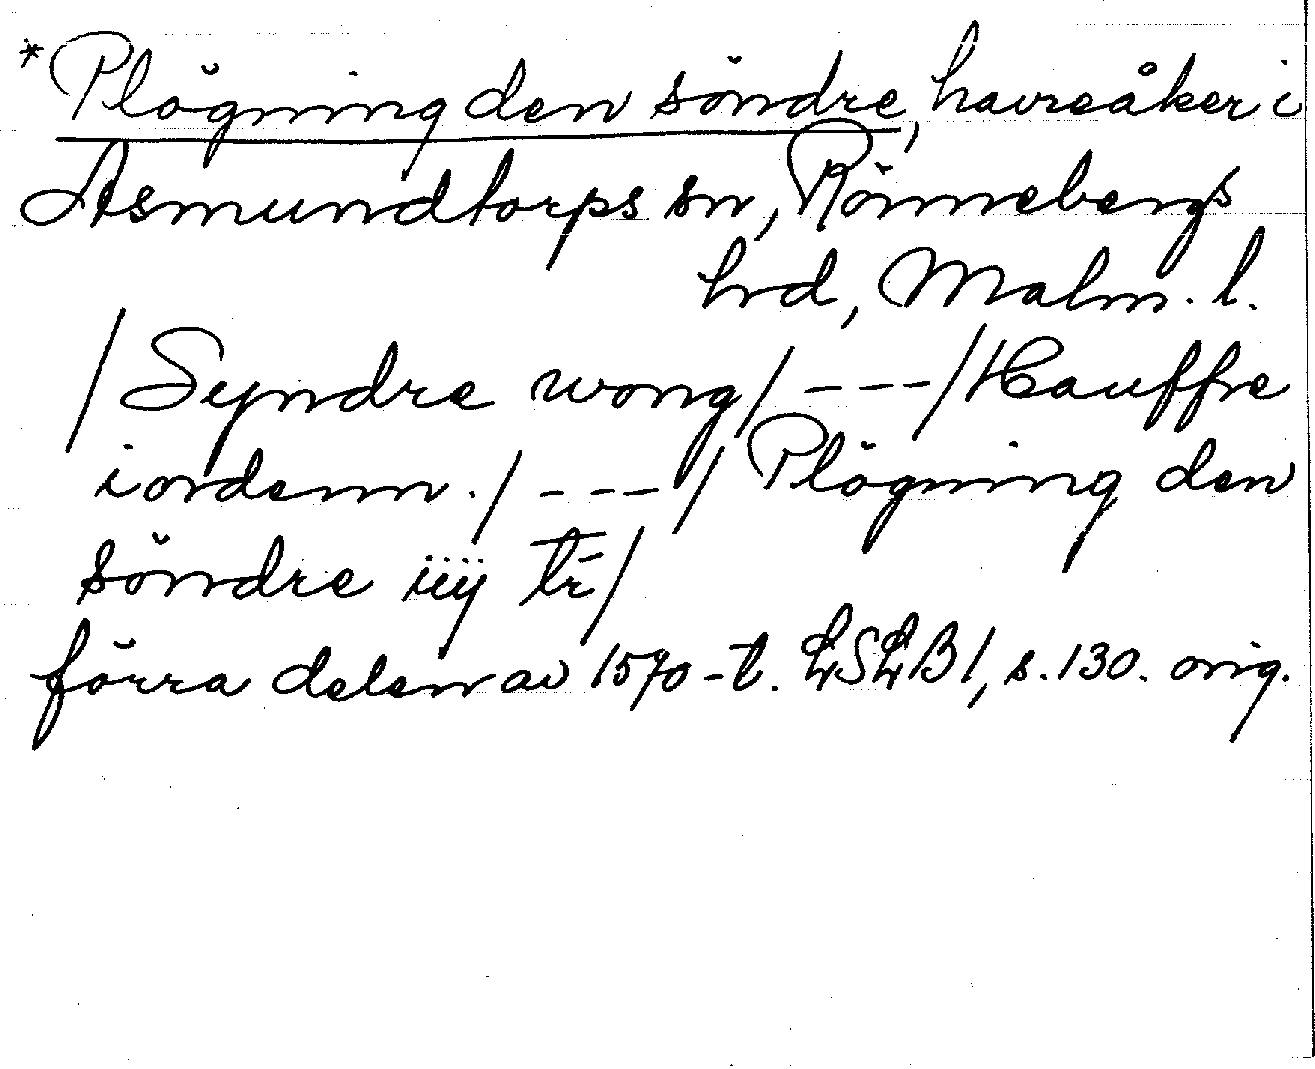 *Plögning den söndre, havreåker i
Asmundtorps sn, Rönnebergs
hrd, Malm. l.
/Syndre wong/ ---/Hauffre
iordenn./ ---/ Plögning den
söndre iiij tr̄/
förra delen av 1570-t. LSLB1, s. 130. orig.